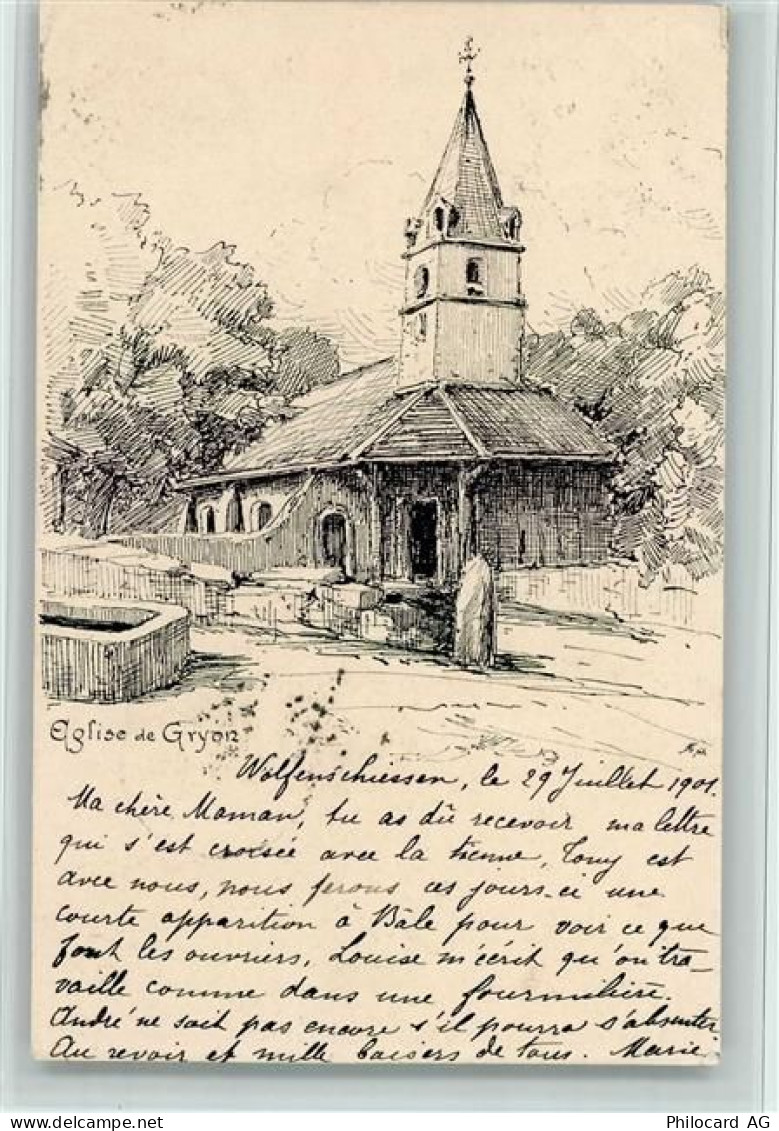 Eglise de Gryon
Wolfenschiessen, le 29 Juillet 1901.
Ma chère Maman, tu as dû recevoir ma lettre
qui s'est croisée avec la tienne, Tony est
avec nous, nous ferons ces jours-ci une
courte apparition à Bâle pour voir ce que
font les ouvriers, Louise m'écrit qu'on tra-
vaille comme dans une fourmilière.
André ne sait pas encore s'il pourra s'absenter
Au revoir et mille baisers de tous. Marie
delcampe.net
Philocard AG